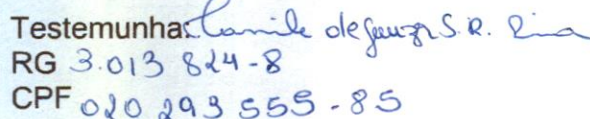 Testemunha: Camile de Souza S. R. Lima
RG 3.013 824-8
CPF 020 293 555-85